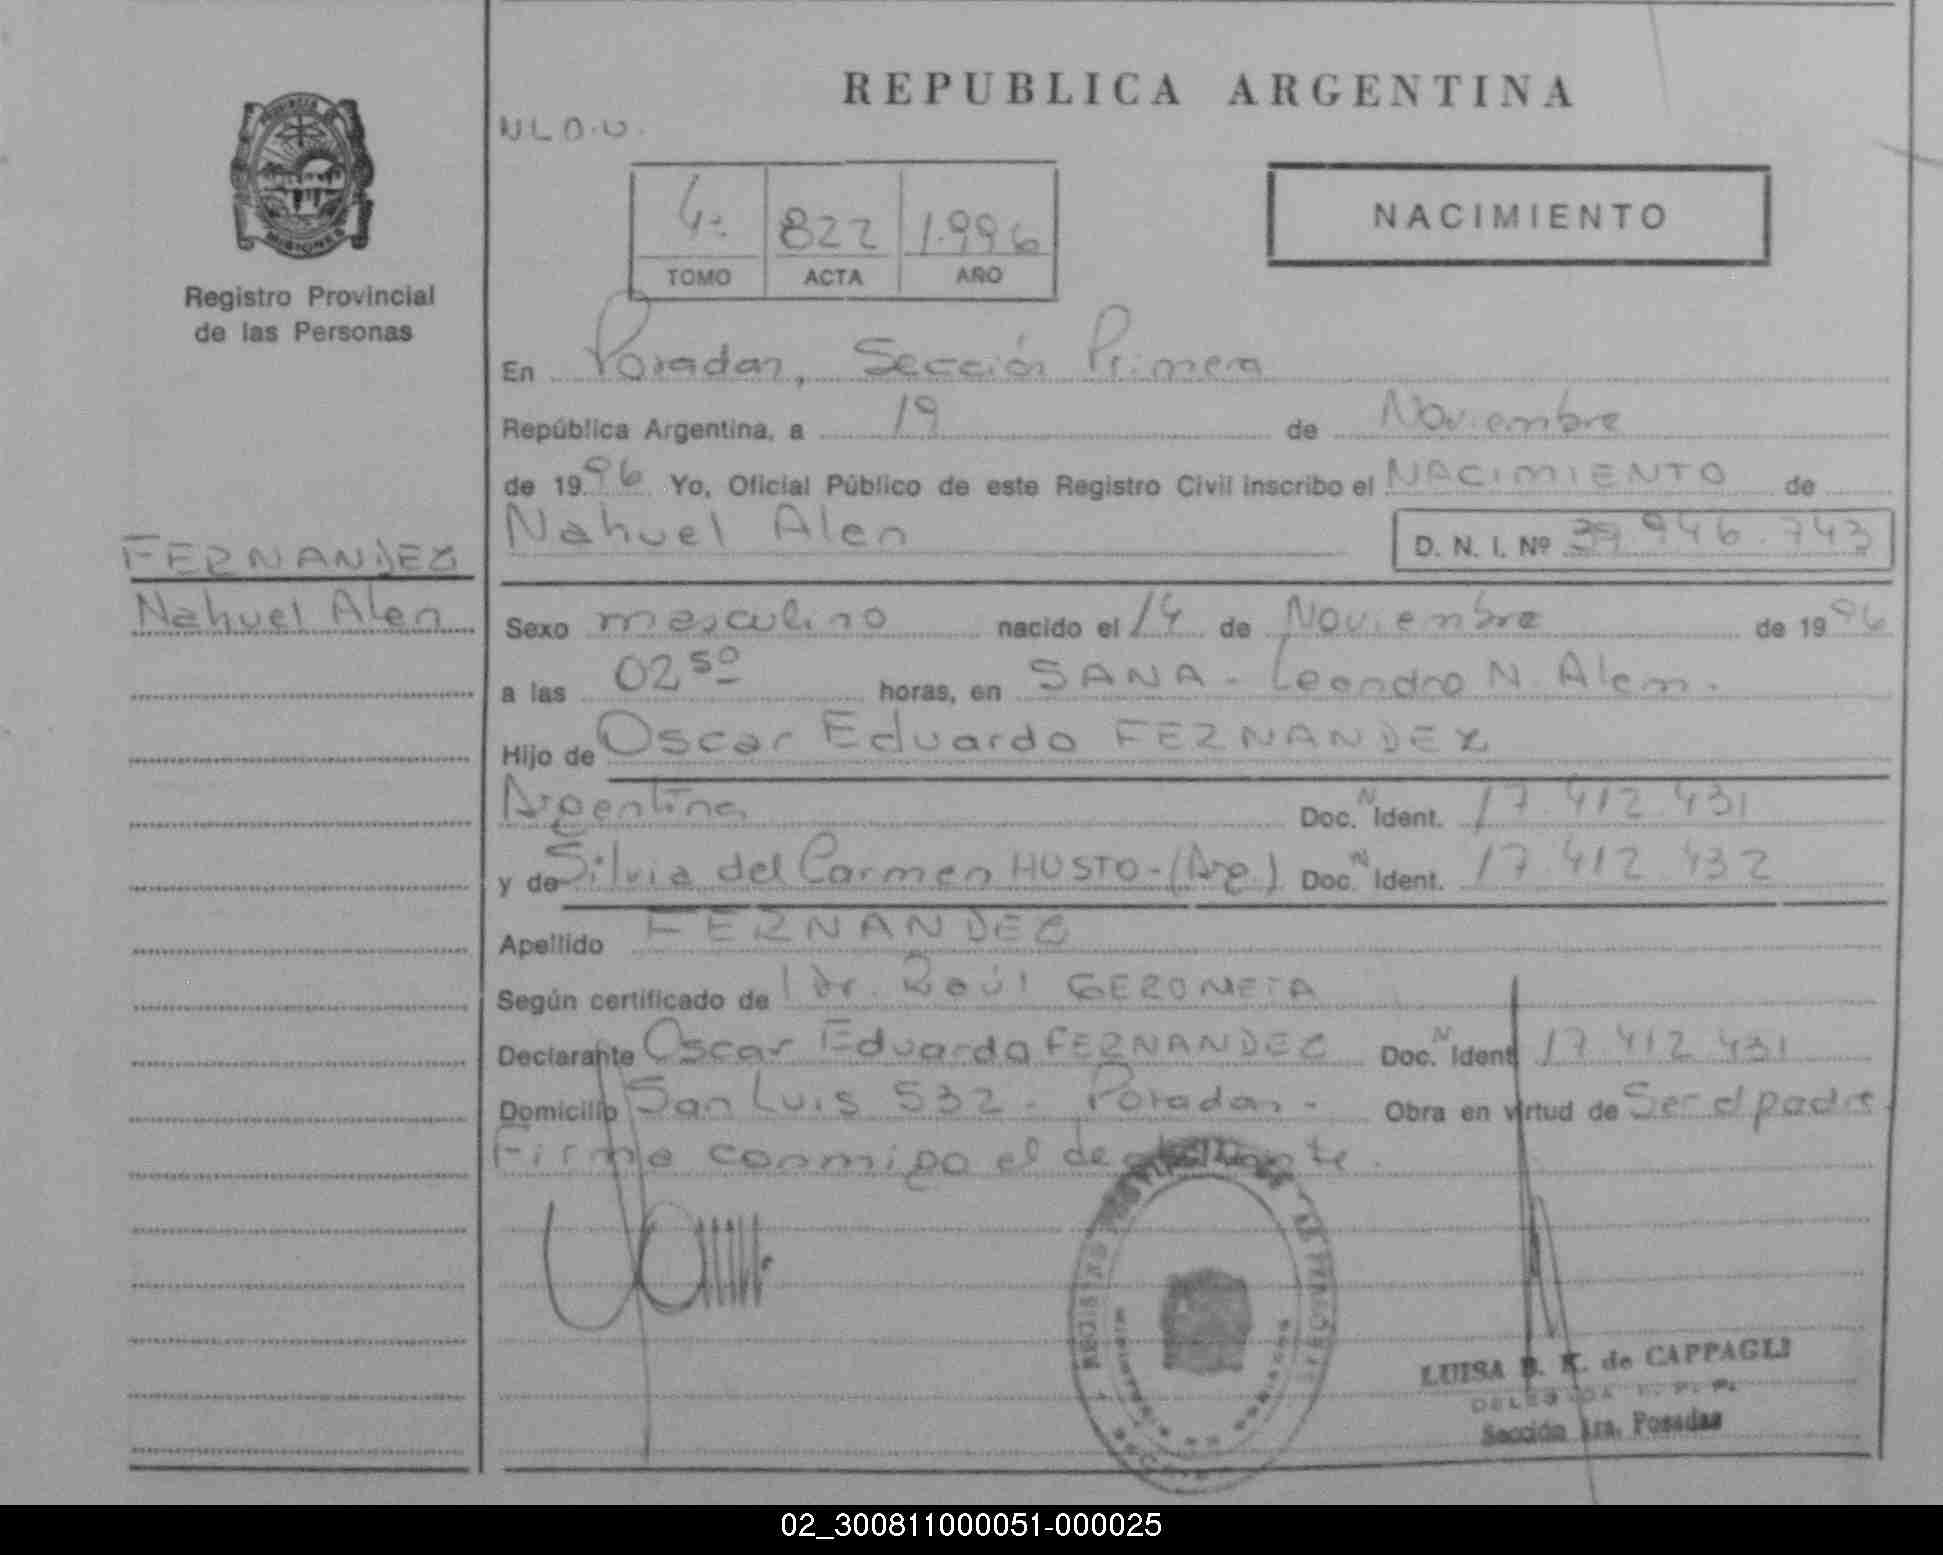 REPUBLICA ARGENTINA
N L O.U.
PROVINCIA
MISIONES
Registro Provincial
de las Personas
4º 822 1.996
TOMO ACTA AÑO
NACIMIENTO
En Posadas, Sección Primera
República Argentina, a 19 de Noviembre
de 1996 Yo, Oficial Público de este Registro Civil inscribo el NACIMIENTO de
Nahuel Alen D. N. I. Nº 39.946.743
FERNANDEZ
Nahuel Alen
Sexo masculino nacido el 14 de Noviembre de 1996
a las 02 50 horas, en SANA - Leandro N. Alem.
Hijo de Oscar Eduardo FERNANDEZ
Argentina Doc. N Ident. 17.412.431
y de Silvia del Carmen HUSTO - (Arg) Doc. N Ident. 17.412.432
Apellido FERNANDEZ
Según certificado de Dr. Raúl GERONETA
Declarante Oscar Eduardo FERNANDEZ Doc. N Ident 17.412.431
Domicilio San Luis 532 - Posadas - Obra en virtud de Ser el padre
Firma conmigo el declarante.
LUISA B. K. de CAPPAGLI
DELEGADA R. P. P.
Sección 1ra. Posadas
02_300811000051-000025